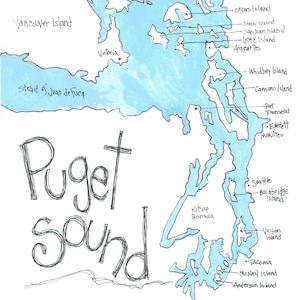 Orcas Island
Shaw Island
San Juan Island
Lopez Island
Anacortes
Vancouver Island
Victoria
Whidbey Island
Strait of Juan de Fuca
Camano Island
Port
Townsend
Everett
Mukilteo
Puget
Sound
Seattle
Bainbridge
Island
Kitsap
Peninsula
Vashon
Island
Tacoma
McNeil Island
Anderson Island